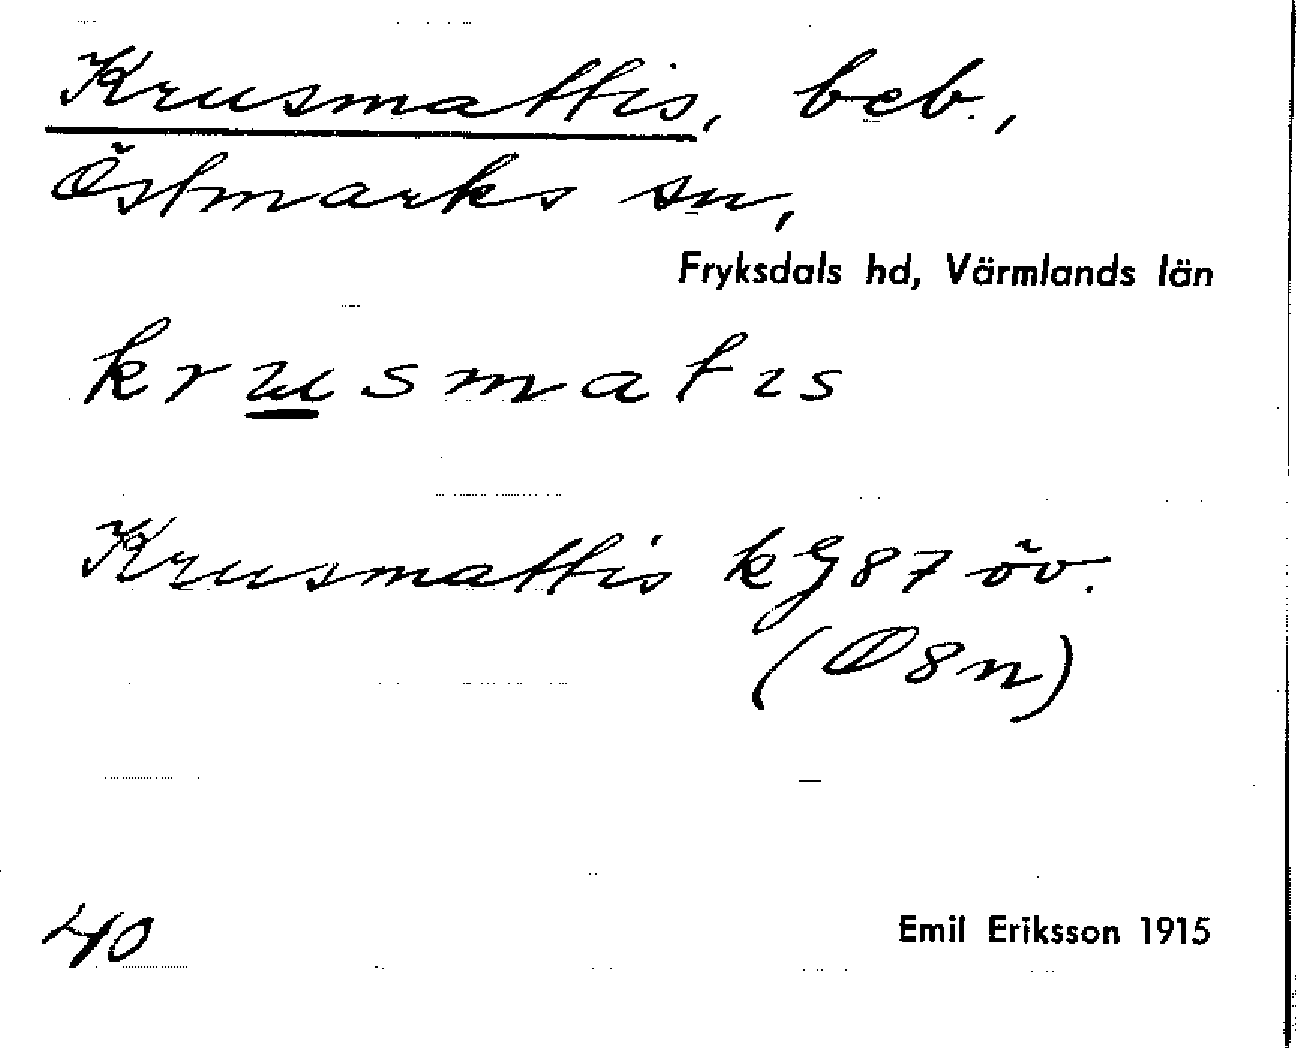 Krusmattis, beb.,
Östmarks sn,
Fryksdals hd, Värmlands län
krusmatis
Krusmattis kG87 öv.
(Ø8n)
40
Emil Eriksson 1915